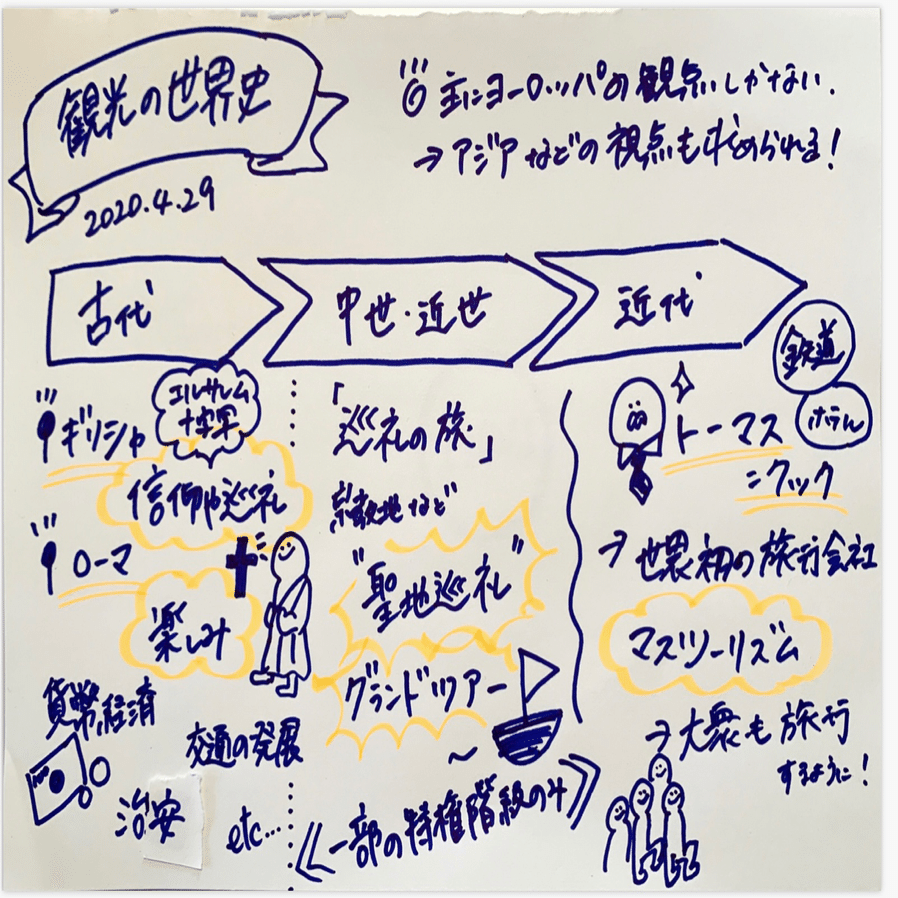 観光の世界史
2020.4.29
主にヨーロッパの観点しかない.
→アジアなどの視点も求められる!
古代
中世・近世
近代
鉄道
ホテル
ギリシャ
エルサレム
十字軍
信仰や巡礼
ローマ
楽しみ
貨幣経済
交通の発展
治安
etc...
「巡礼の旅」
など
"聖地巡礼"
グランドツアー
一部の特権階級のみ
トーマス
=クック
→世界初の旅行会社
マスツーリズム
→大衆も旅行
するように!